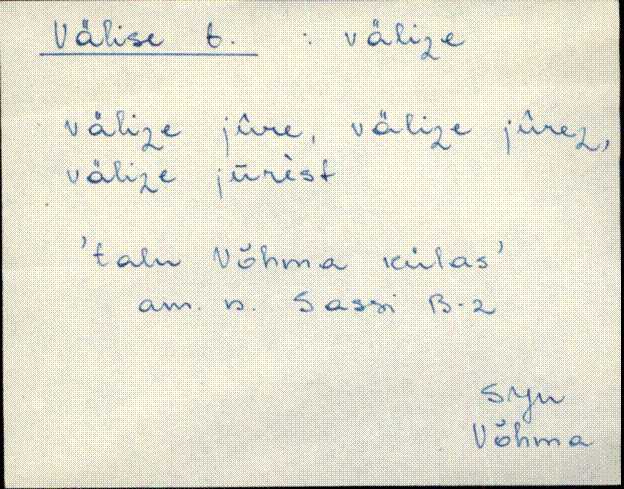 Välise t. : välize
välize jûre, välize jûrez,
välize jūrèst
'talu Võhma külas'
am. n. Sassi B-2
SJn
Võhma